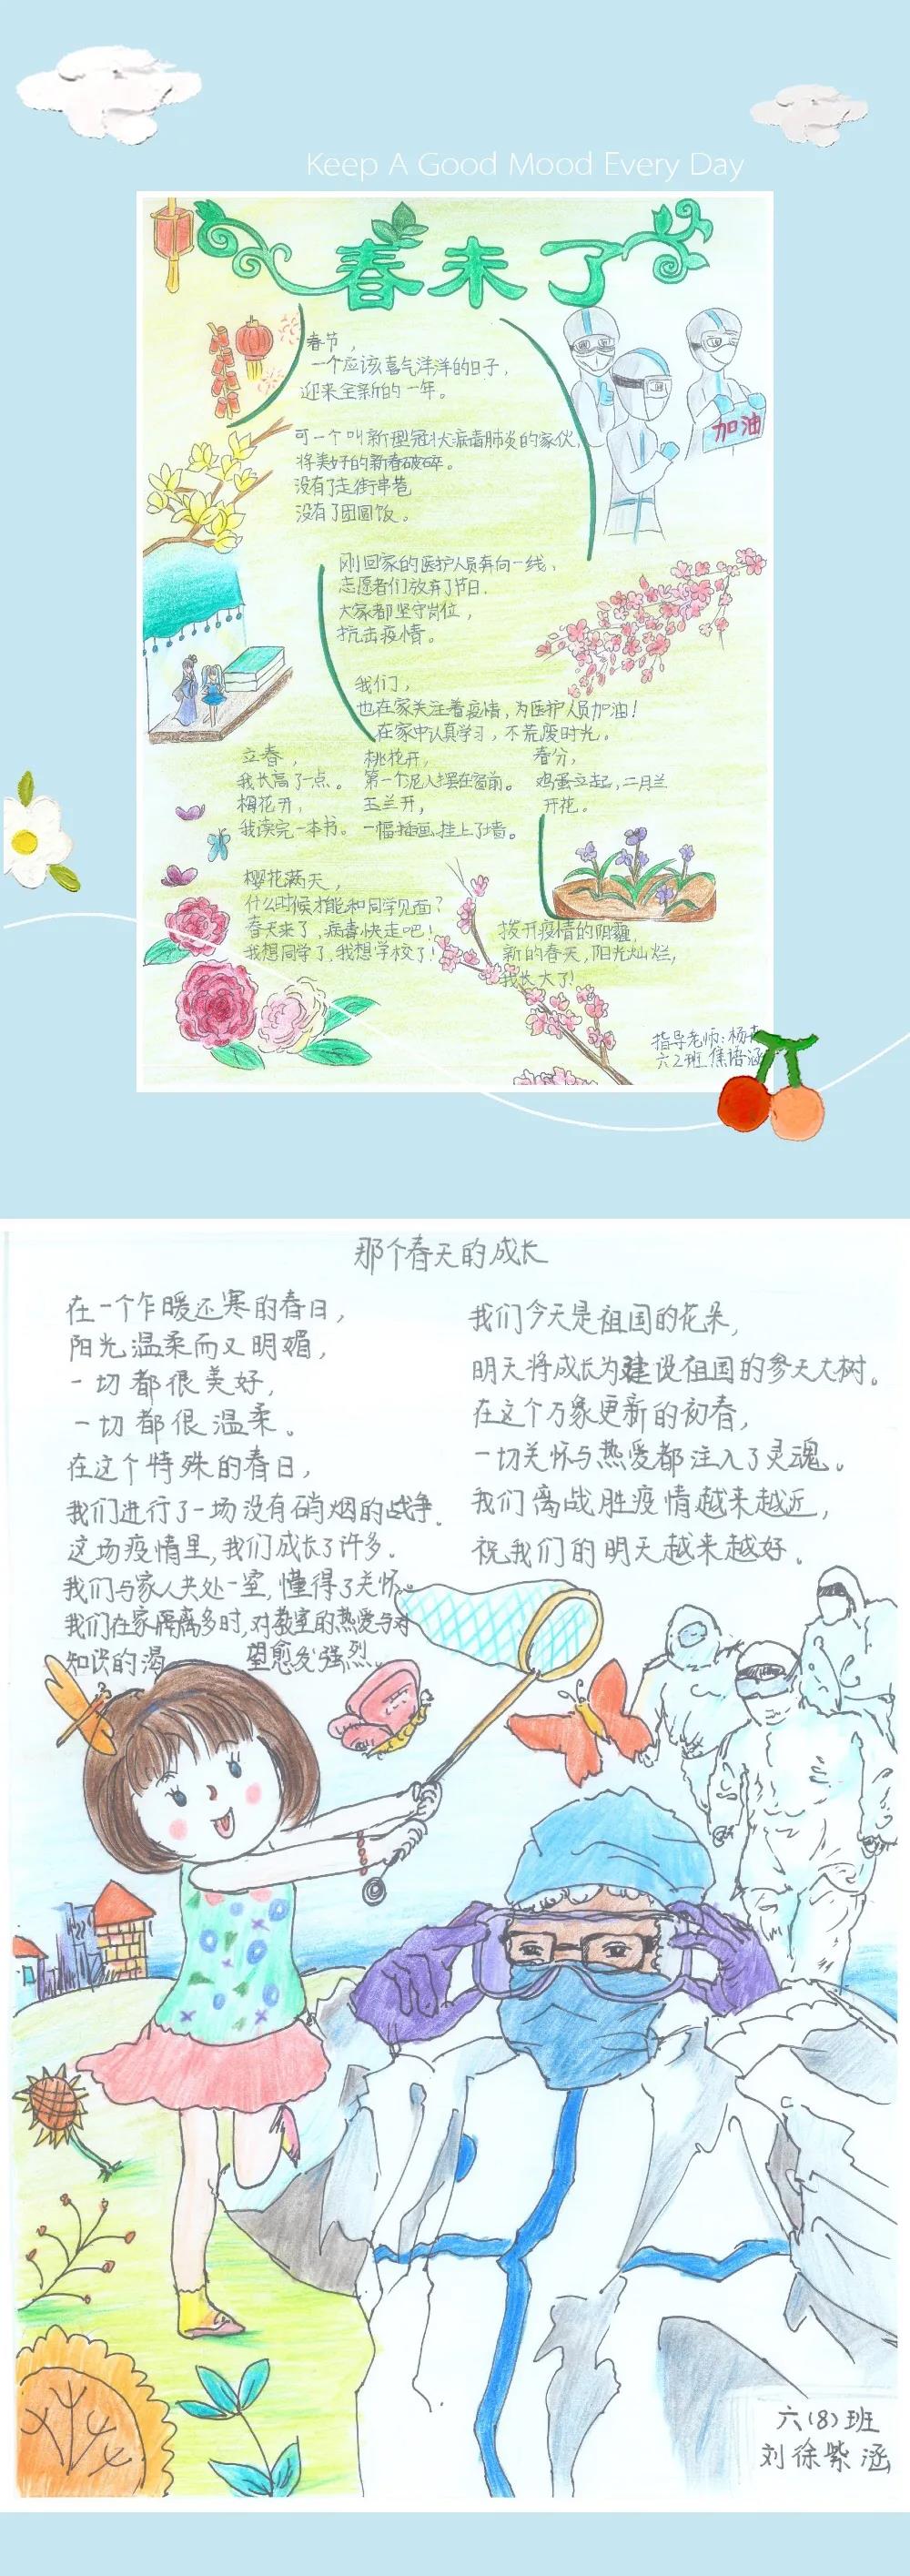 Keep A Good Mood Every Day
春来了
春节，
一个应该喜气洋洋的日子，
迎来全新的一年。
可一个叫新型冠状病毒肺炎的家伙，
将美好的新春破碎。
没有了走街串巷
没有了团圆饭。
加油
刚回家的医护人员奔向一线，
志愿者们放弃了节日，
大家都坚守岗位，
抗击疫情。
我们，
也在家关注着疫情，为医护人员加油！
在家中认真学习，不荒废时光。
立春，
我长高了一点。
梅花开，
我读完一本书。
桃花开，
第一个泥人摆在窗前。
玉兰开，
一幅插画挂上了墙。
春分，
鸡蛋立起，二月兰
开花。
樱花满天，
什么时候才能和同学见面？
春天来了，病毒快走吧！
我想同学了，我想学校了！
拨开疫情的阴霾，
新的春天，阳光灿烂，
我长大了！
指导老师：杨
六2班 焦语涵
那个春天的成长
在一个乍暖还寒的春日，
阳光温柔而又明媚，
一切都很美好，
一切都很温柔。
在这个特殊的春日，
我们进行了一场没有硝烟的战争。
这场疫情里，我们成长了许多。
我们与家人共处一室，懂得了关怀。
我们在家隔离多时，对教室的热爱与对
知识的渴望愈发强烈。
我们今天是祖国的花朵，
明天将成长为建设祖国的参天大树。
在这个万象更新的初春，
一切关怀与热爱都注入了灵魂。
我们离战胜疫情越来越近，
祝我们的明天越来越好。
六(8)班
刘徐紫涵